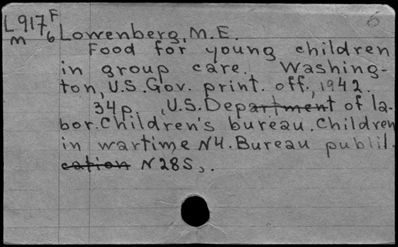 L917F
m 6
6
Lowenberg, M.E.
Food for young children
in group care. Washing-
ton, U.S. Gov. print. off., 1942.
34p. (U.S. Department of la-
bor. Children's bureau. Children
in wartime №4. Bureau publi
cation №285).